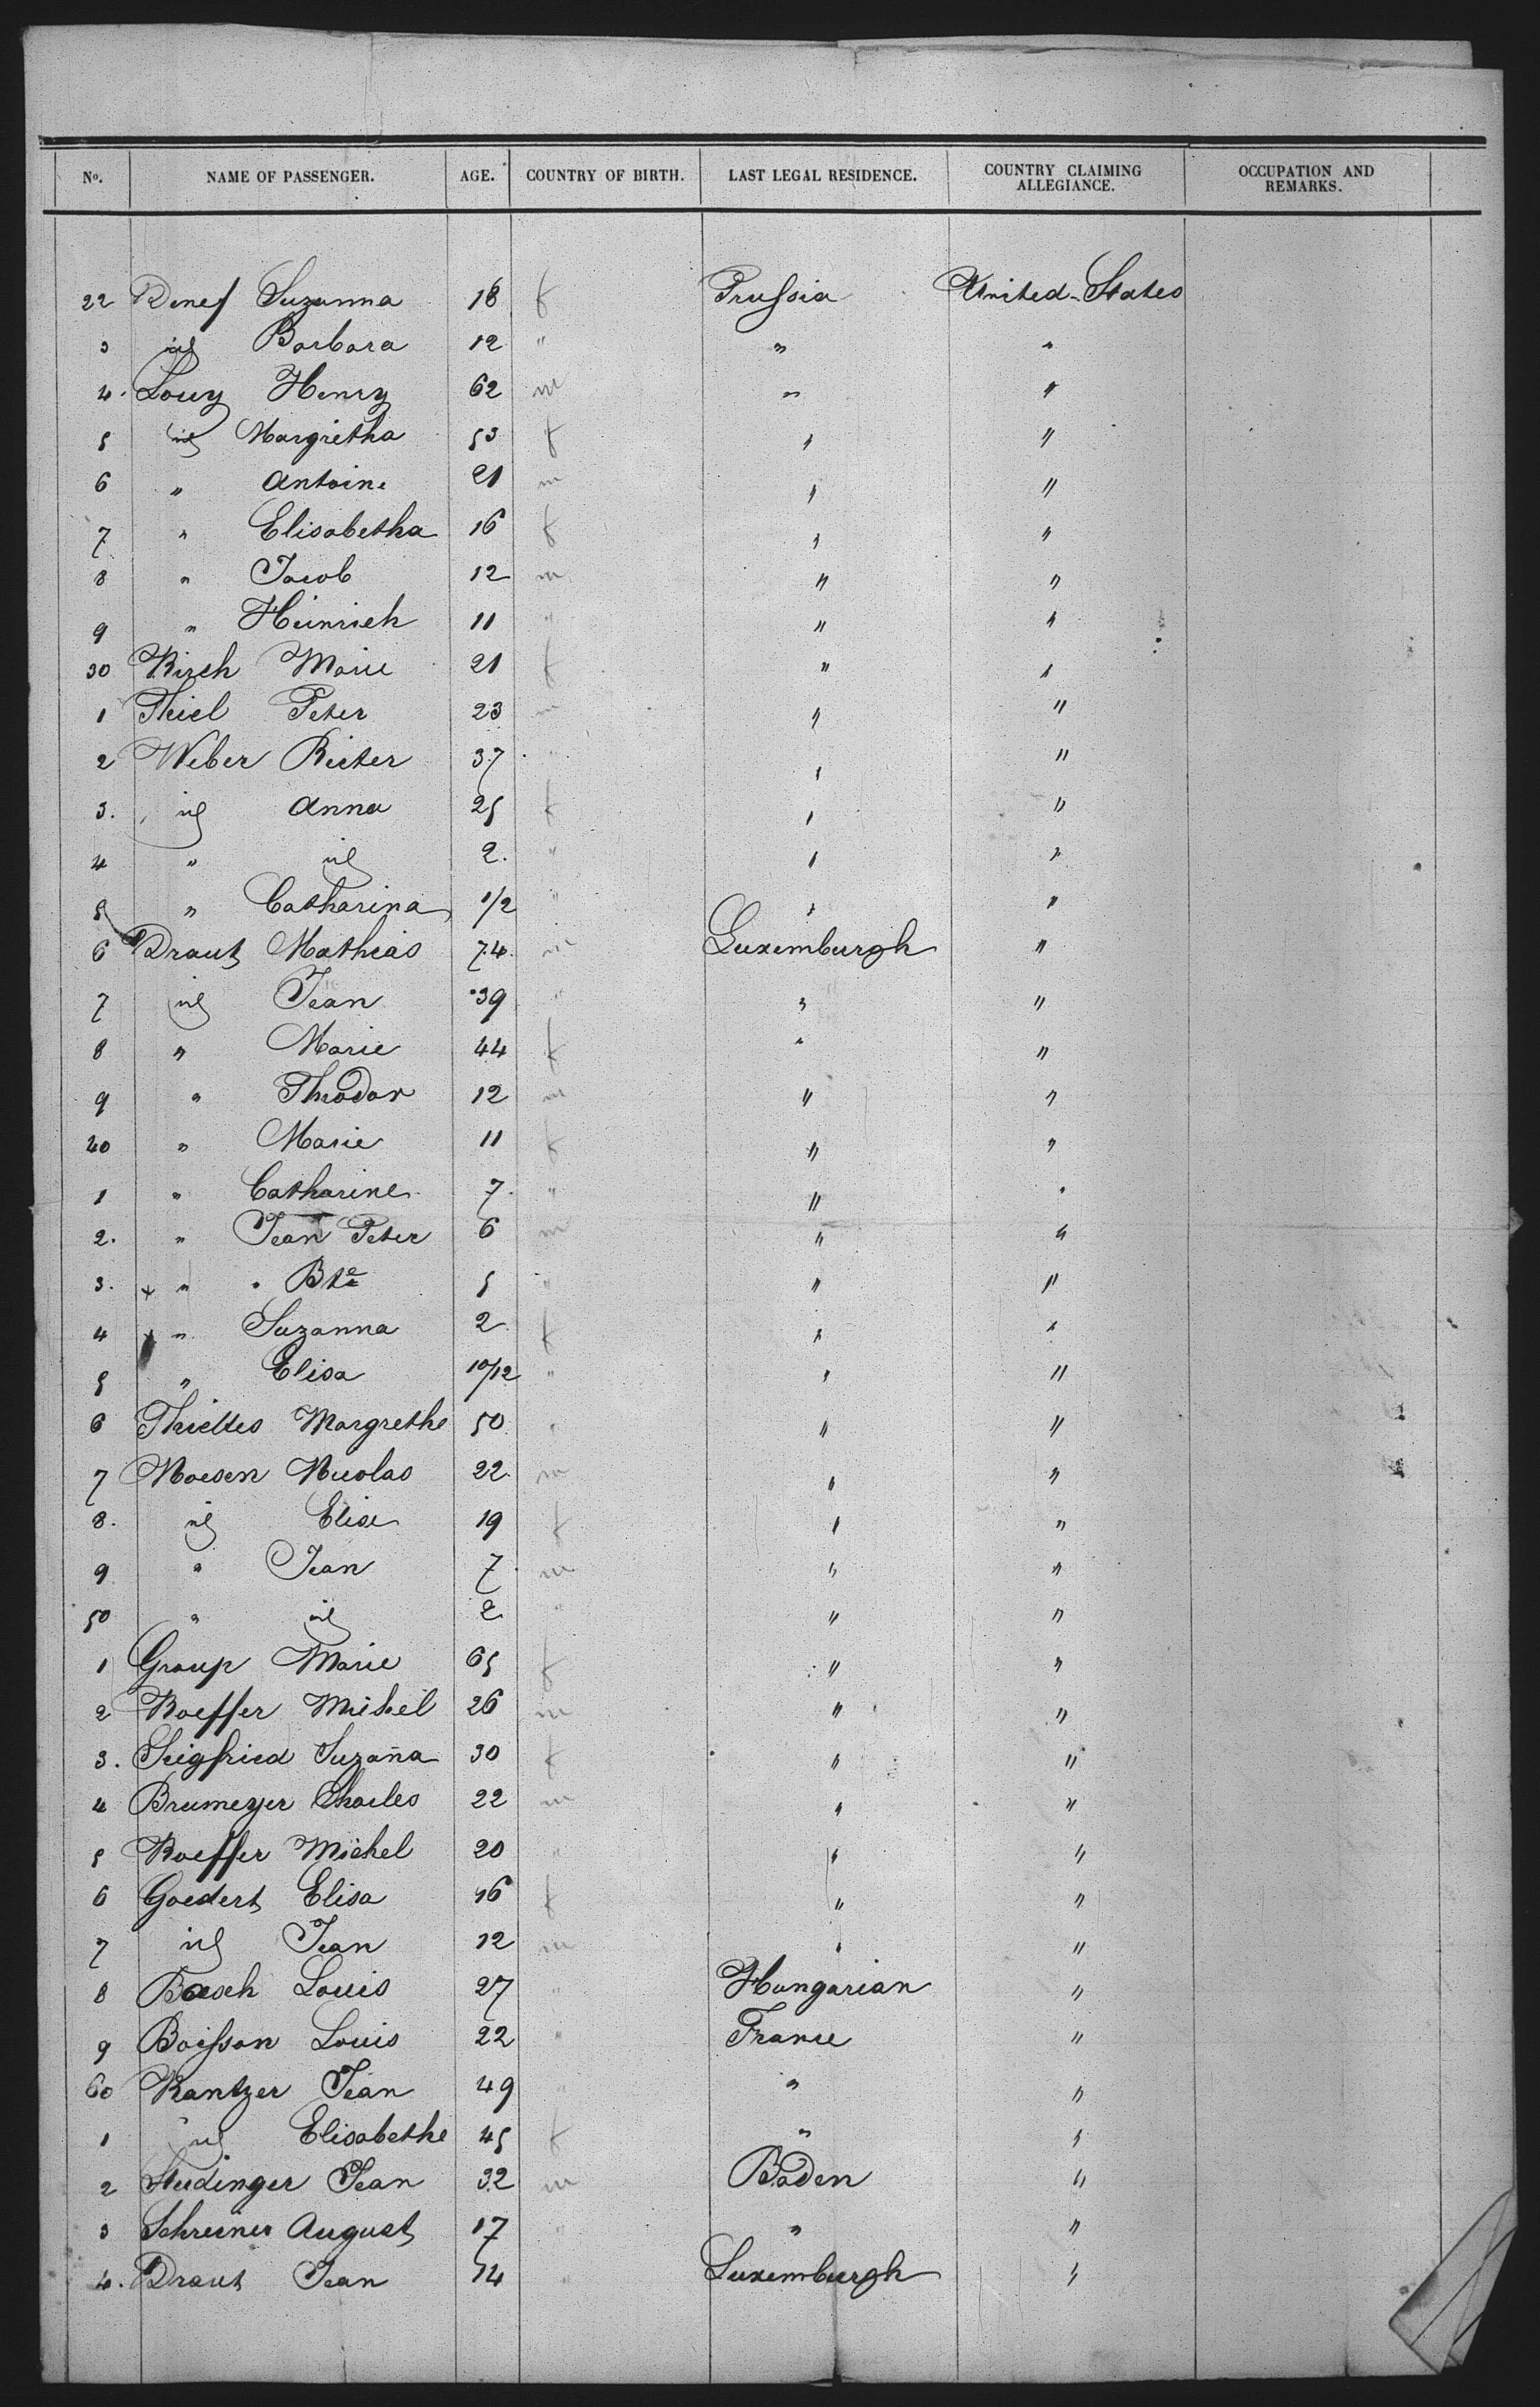 No. NAME OF PASSENGER. AGE. COUNTRY OF BIRTH. LAST LEGAL RESIDENCE. COUNTRY CLAIMING ALLEGIANCE. OCCUPATION AND REMARKS.
22 Denef Suzanna 18 f Prussia United-States
3 id Barbara 12 " " "
4. Louy Henry 62 m " "
5 id Margretha 53 f " "
6 " Antoine 21 m " "
7 " Elisabetha 16 f " "
8 " Jacob 12 m " "
9 " Heinrich 11 " " "
30 Kirch Marie 21 f " "
1 Thiel Peter 23 m " "
2 Weber Peter 37 " " "
3. id Anna 25 f " "
4 " id 2. " " "
5 " Catharina 1/2 " " "
6 Draut Mathias 74. m Luxemburgh "
7 id Jean 39 " " "
8 " Marie 44 f " "
9 " Theodor 12 m " "
40 " Marie 11 f " "
1 " Catharine 7. " " "
2. " Jean Peter 6 m " "
3. " " Bte 5 " " "
4 " Suzanna 2 f " "
5 " Elisa 10/12 " " "
6 Margrethe 50 " " "
7 Moesen Nicolas 22 m " "
8. id Elise 19 f " "
9 " Jean 7 m " "
50 " id 2 " " "
1 Graup Marie 65 f " "
2 Koeffer Michel 26 m " "
3. Siegfried Suzana 30 f " "
4 Brumeyer Charles 22 m " "
5 Koeffer Michel 20 " " "
6 Goedert Elisa 46 f " "
7 id Jean 12 m " "
8 Boesch Louis 27 " Hungarian "
9 Boisson Louis 22 " France "
60 Kantzer Jean 49 " " "
1 id Elisabethe 45 f " "
2 Steidinger Jean 32 m Baden "
3 Schreiner August 17 " " "
4. Draut Jean 14 " Luxemburgh "